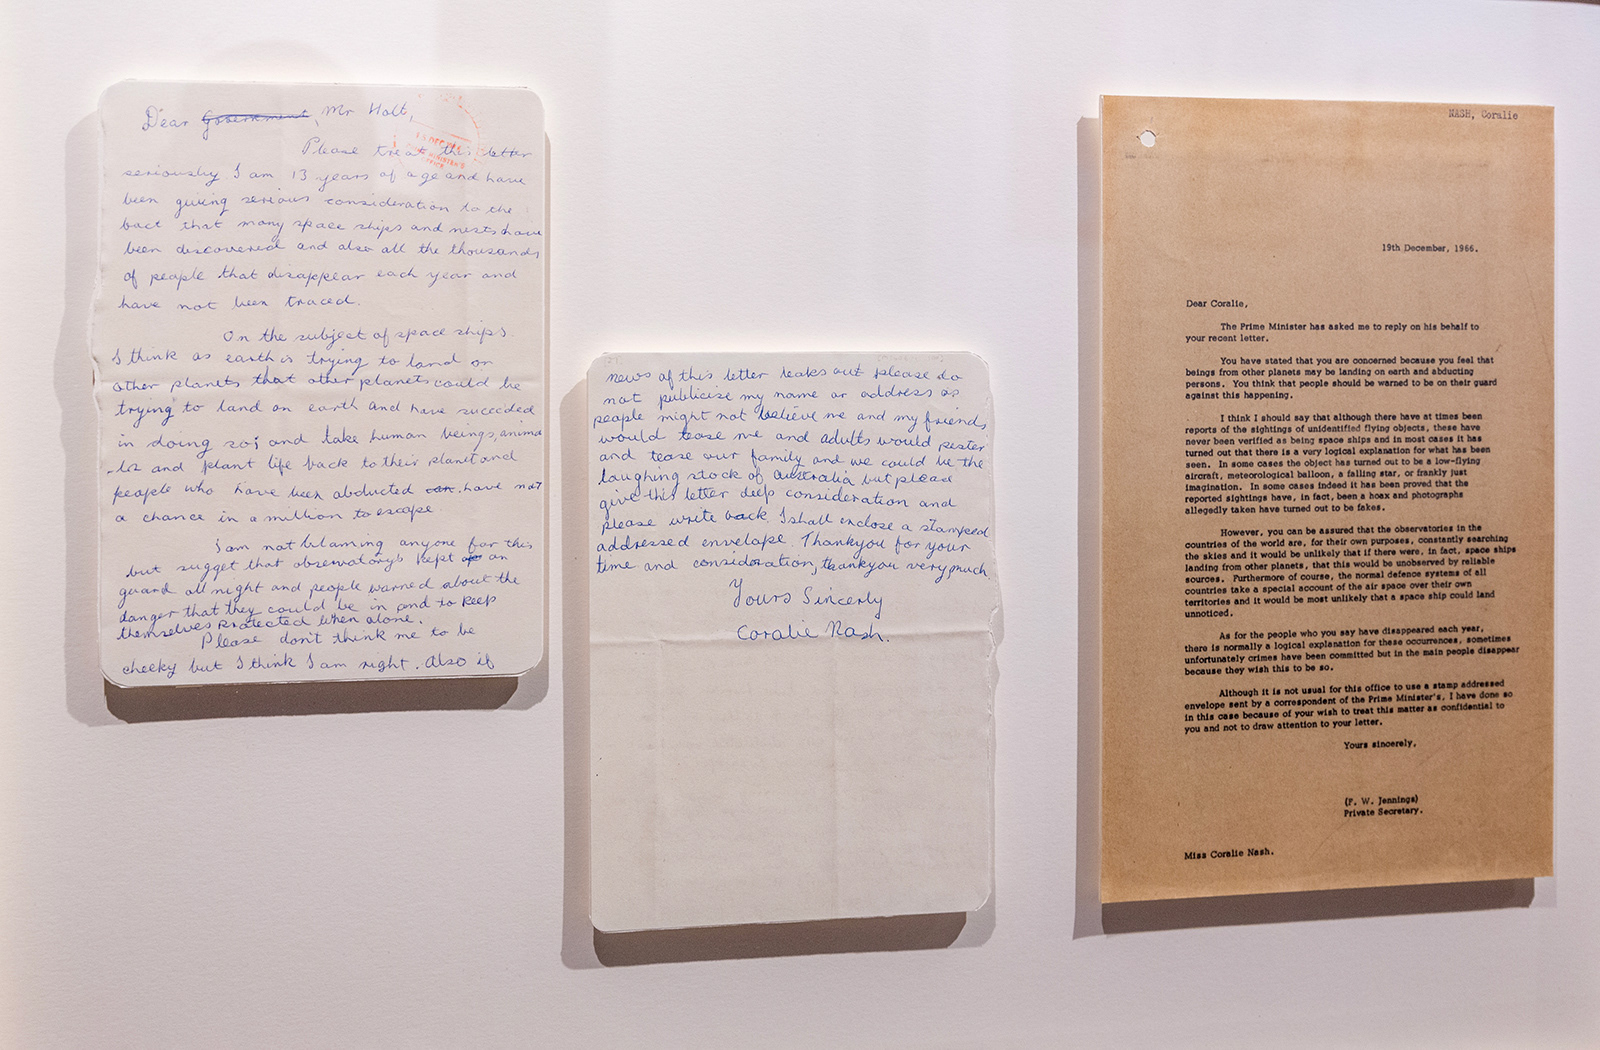 Dear Government, Mr Holt,
Please treat this letter
seriously I am 13 years of age and have
been giving serious consideration to the
bact that many space ships and nests have
been discovered and also all the thousands
of people that disappear each year and
have not been traced.
On the subject of space ships.
I think as earth is trying to land on
other planets that other planets could be
trying to land on earth and have succeeded
in doing so; and take human beings, anima
-ls and plant life back to their planet and
people who have been abducted can have not
a chance in a million to escape.
I am not blaming anyone for this
but sugget that observatory's kept on
guard all night and people warned about the
danger that they could be in and to keep
themselves protected when alone.
Please don't think me to be
cheeky but I think I am right. Also if
news of this letter leaks out please do
not publicise my name or address as
people might not believe me and my friends
would tease me and adults would pester
and tease our family and we could be the
laughing stock of australia but please
give this letter deep consideration and
please write back. I shall enclose a stamped
addressed envelope. Thankyou for your
time and consideration, thankyou very much.
Yours Sincerly
Coralie Nash.
NASH, Coralie
19th December, 1966.
Dear Coralie,
The Prime Minister has asked me to reply on his behalf to
your recent letter.
You have stated that you are concerned because you feel that
beings from other planets may be landing on earth and abducting
persons. You think that people should be warned to be on their guard
against this happening.
I think I should say that although there have at times been
reports of the sightings of unidentified flying objects, these have
never been verified as being space ships and in most cases it has
turned out that there is a very logical explanation for what has been
seen. In some cases the object has turned out to be a low-flying
aircraft, meteorological balloon, a falling star, or frankly just
imagination. In some cases indeed it has been proved that the
reported sightings have, in fact, been a hoax and photographs
allegedly taken have turned out to be fakes.
However, you can be assured that the observatories in the
countries of the world are, for their own purposes, constantly searching
the skies and it would be unlikely that if there were, in fact, space ships
landing from other planets, that this would be unobserved by reliable
sources. Furthermore of course, the normal defence systems of all
countries take a special account of the air space over their own
territories and it would be most unlikely that a space ship could land
unnoticed.
As for the people who you say have disappeared each year,
there is normally a logical explanation for these occurrences, sometimes
unfortunately crimes have been committed but in the main people disappear
because they wish this to be so.
Although it is not usual for this office to use a stamp addressed
envelope sent by a correspondent of the Prime Minister's, I have done so
in this case because of your wish to treat this matter as confidential to
you and not to draw attention to your letter.
Yours sincerely,
(F. W. Jennings)
Private Secretary.
Miss Coralie Nash.